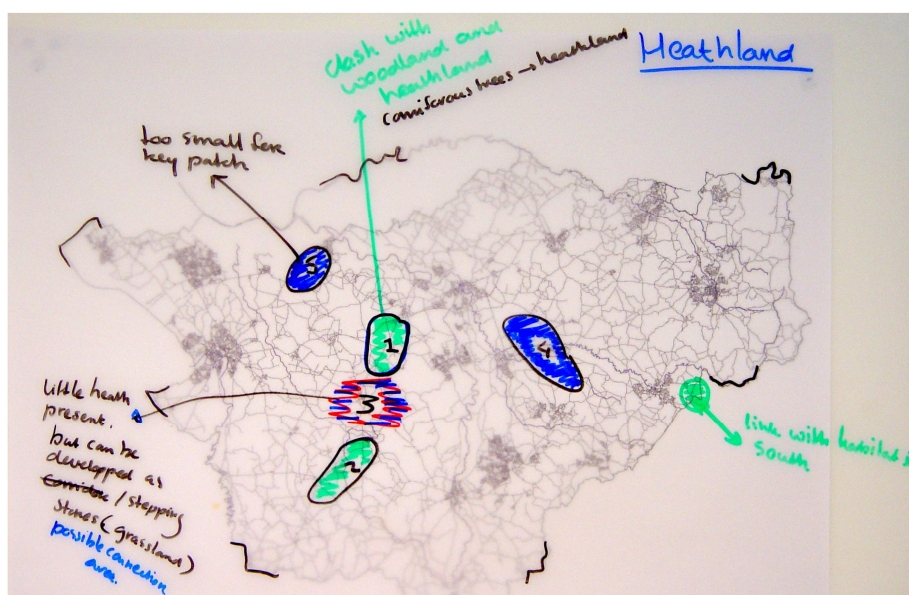 Heathland
clash with
woodland and
heathland
coniferous trees → heathland
too small for
key patch
5
1
4
3
2
little heath
present.
but can be
developped as
corridor / stepping
stones (grassland)
possible connection
area.
link with habitat
south